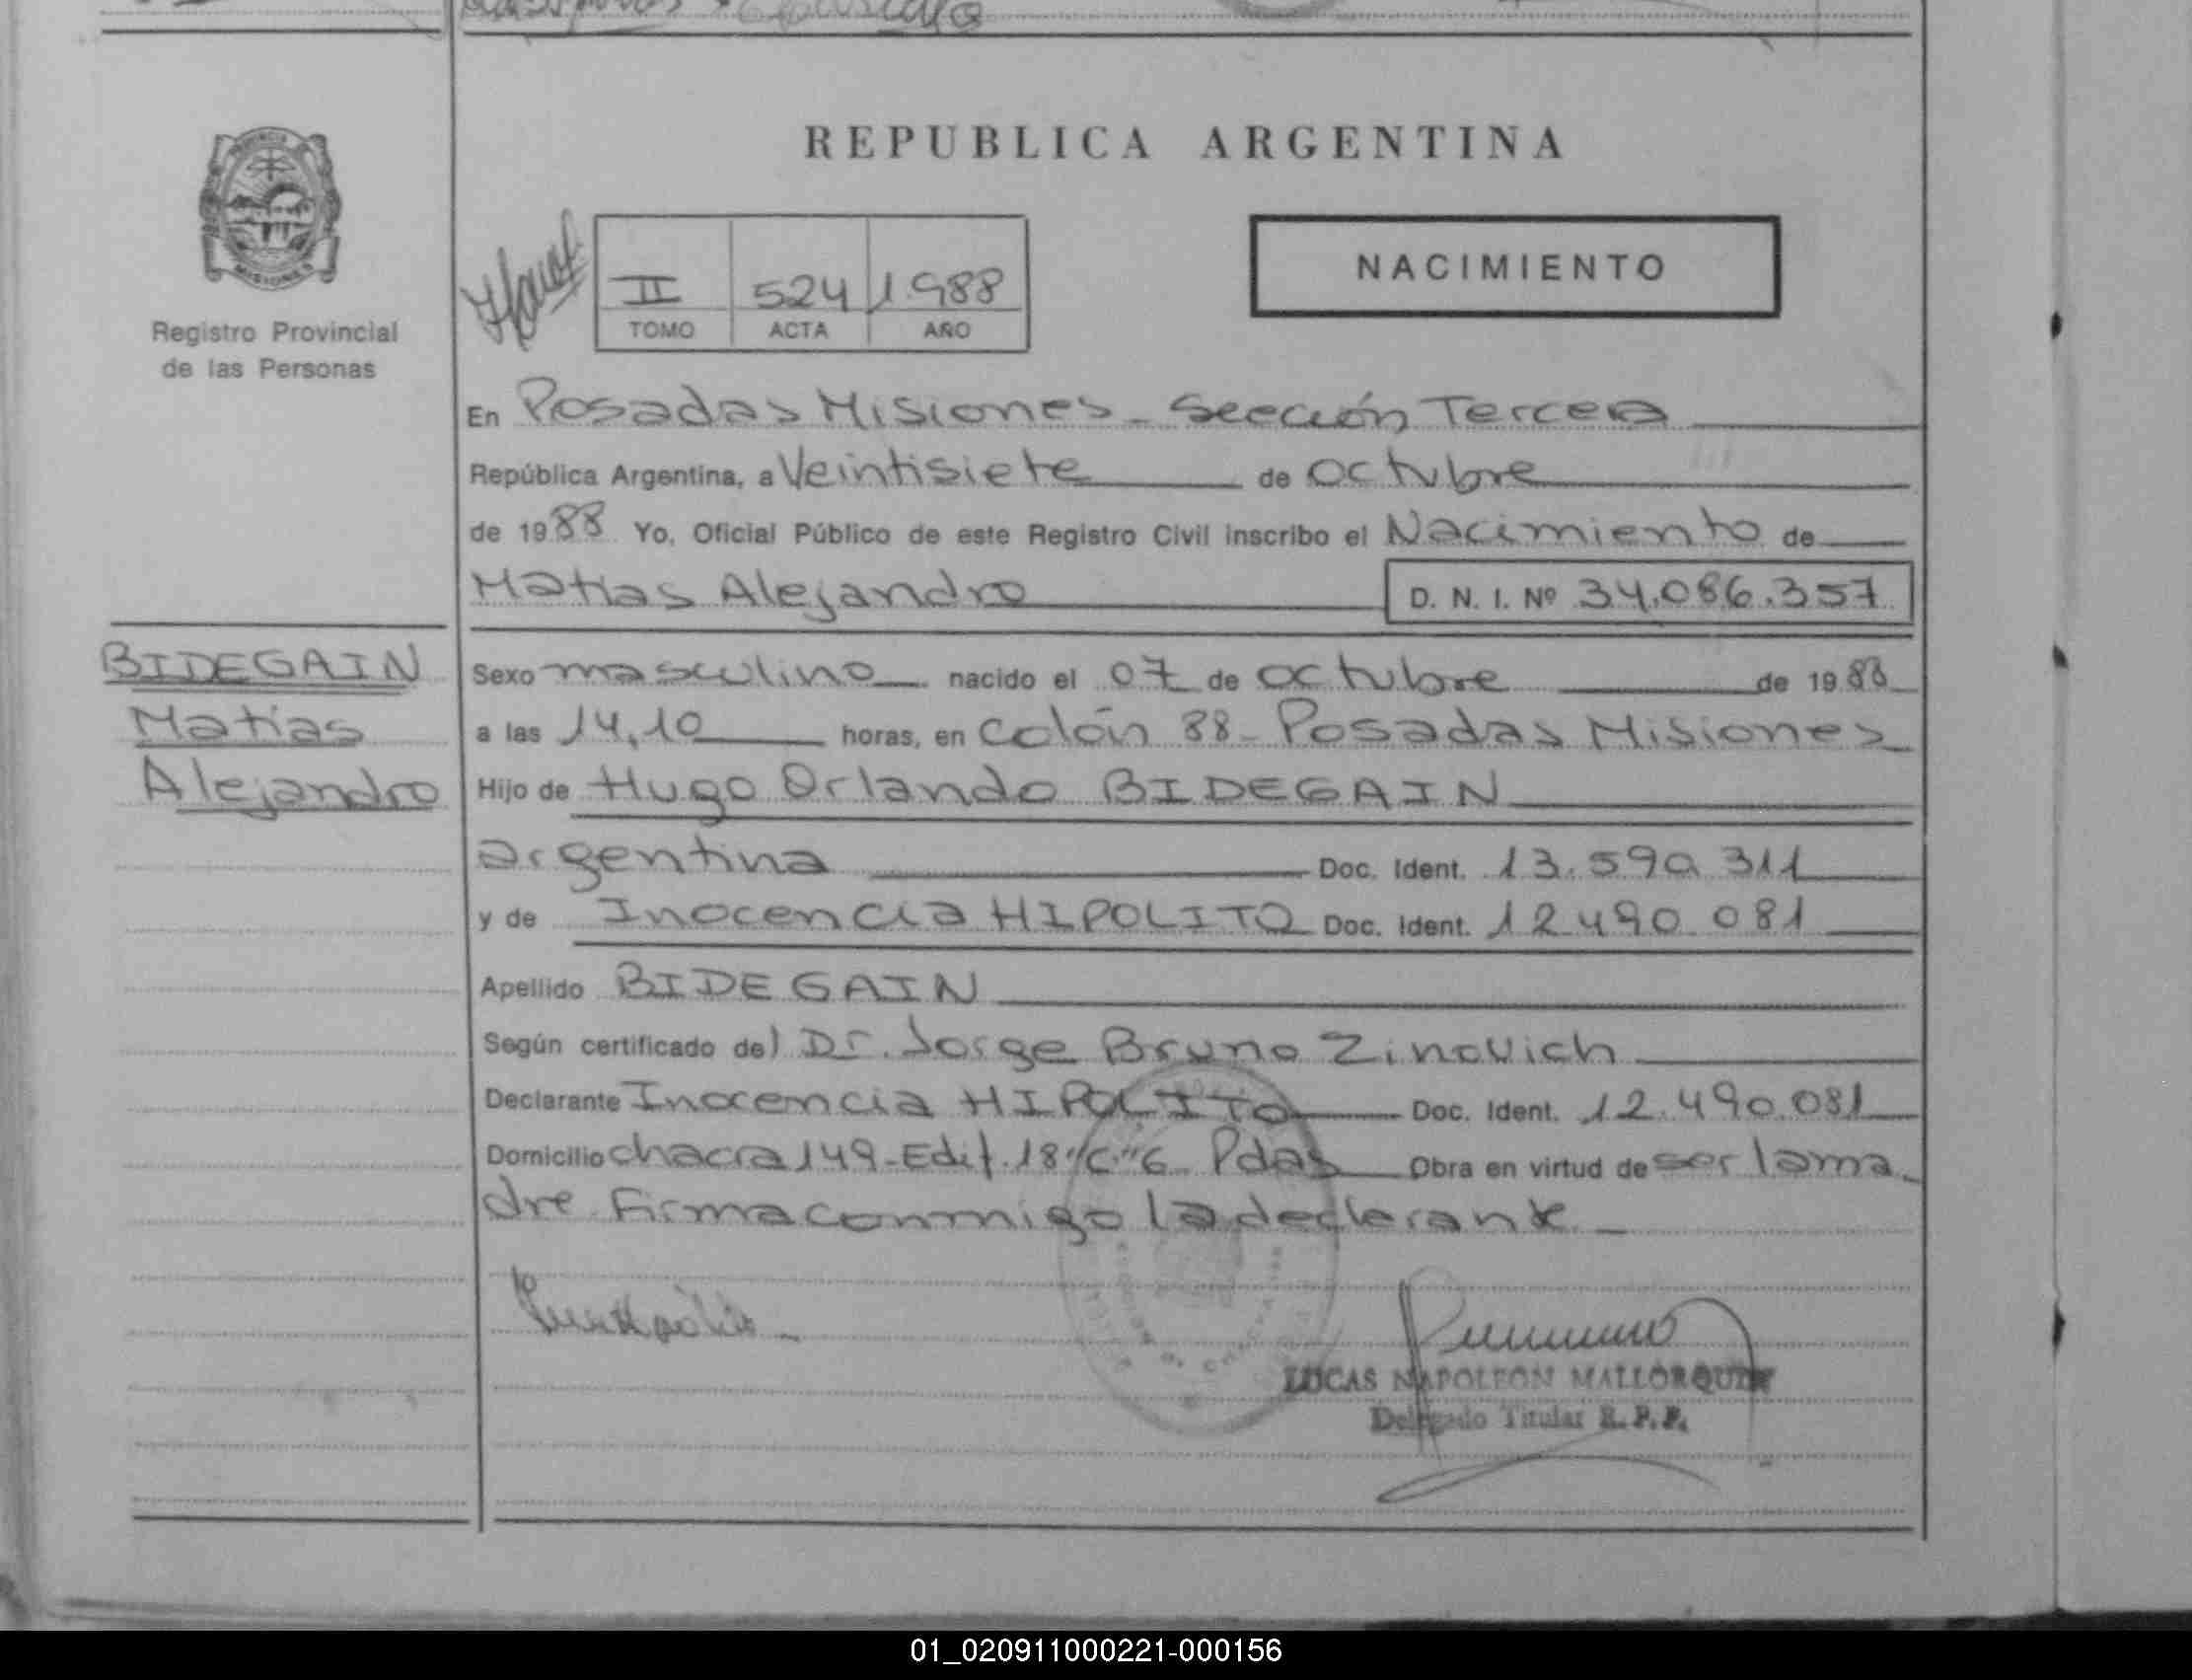 REPUBLICA ARGENTINA
PROVINCIA
MISIONES
Registro Provincial
de las Personas
II 524 1988
TOMO ACTA AÑO
NACIMIENTO
En Posadas Misiones - Sección Tercera
República Argentina, a Veintisiete de octubre
de 1988 Yo, Oficial Público de este Registro Civil inscribo el Nacimiento de
Matias Alejandro D. N. I. Nº 34.086.357
BIDEGAIN
Matías
Alejandro
Sexo masculino nacido el 07 de octubre de 1988
a las 14,10 horas, en Colón 88 - Posadas Misiones
Hijo de Hugo Orlando BIDEGAIN
argentina Doc. Ident. 13.590.311
y de Inocencia HIPOLITO Doc. Ident. 12.490.081
Apellido BIDEGAIN
Según certificado del Dr. Jorge Bruno Zinovich
Declarante Inocencia HIPOLITO Doc. Ident. 12.490.081
Domicilio chacra 149 - Edif. 18 "C" 6 Pdas Obra en virtud de ser la ma
dre Firma conmigo la declarante -
LUCAS NAPOLEON MALLORQUIN
Delegado Titular R. P. P.
01_020911000221-000156